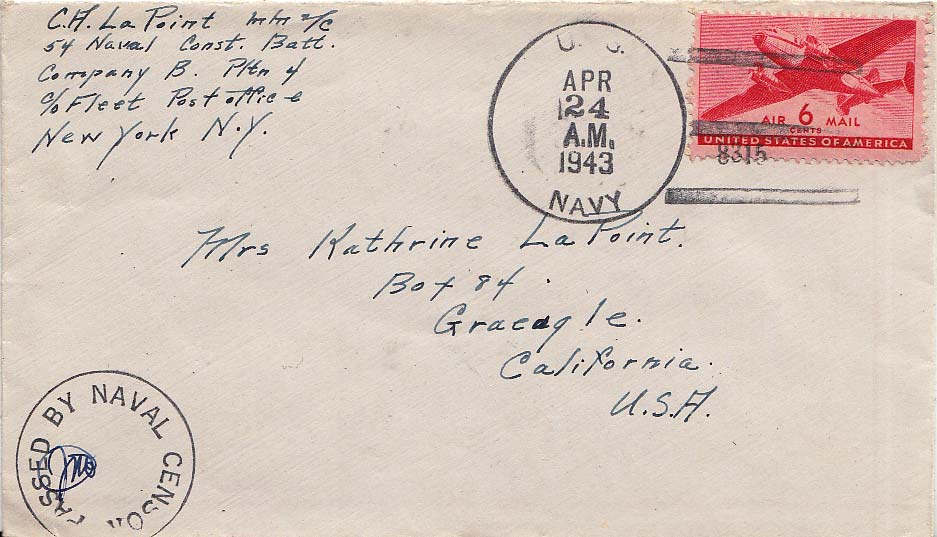 C.H. La Point mm 2/c
54 Naval Const. Batt.
Company B. Pltn 4
c/o Fleet Post office
New York N.Y.
U. S.
APR
24
A.M.
1943
NAVY
AIR 6 MAIL
CENTS
UNITED STATES OF AMERICA
8315
Mrs Kathrine La Point.
Box 84.
Graeagle.
California.
U.S.A.
PASSED BY NAVAL CENSOR